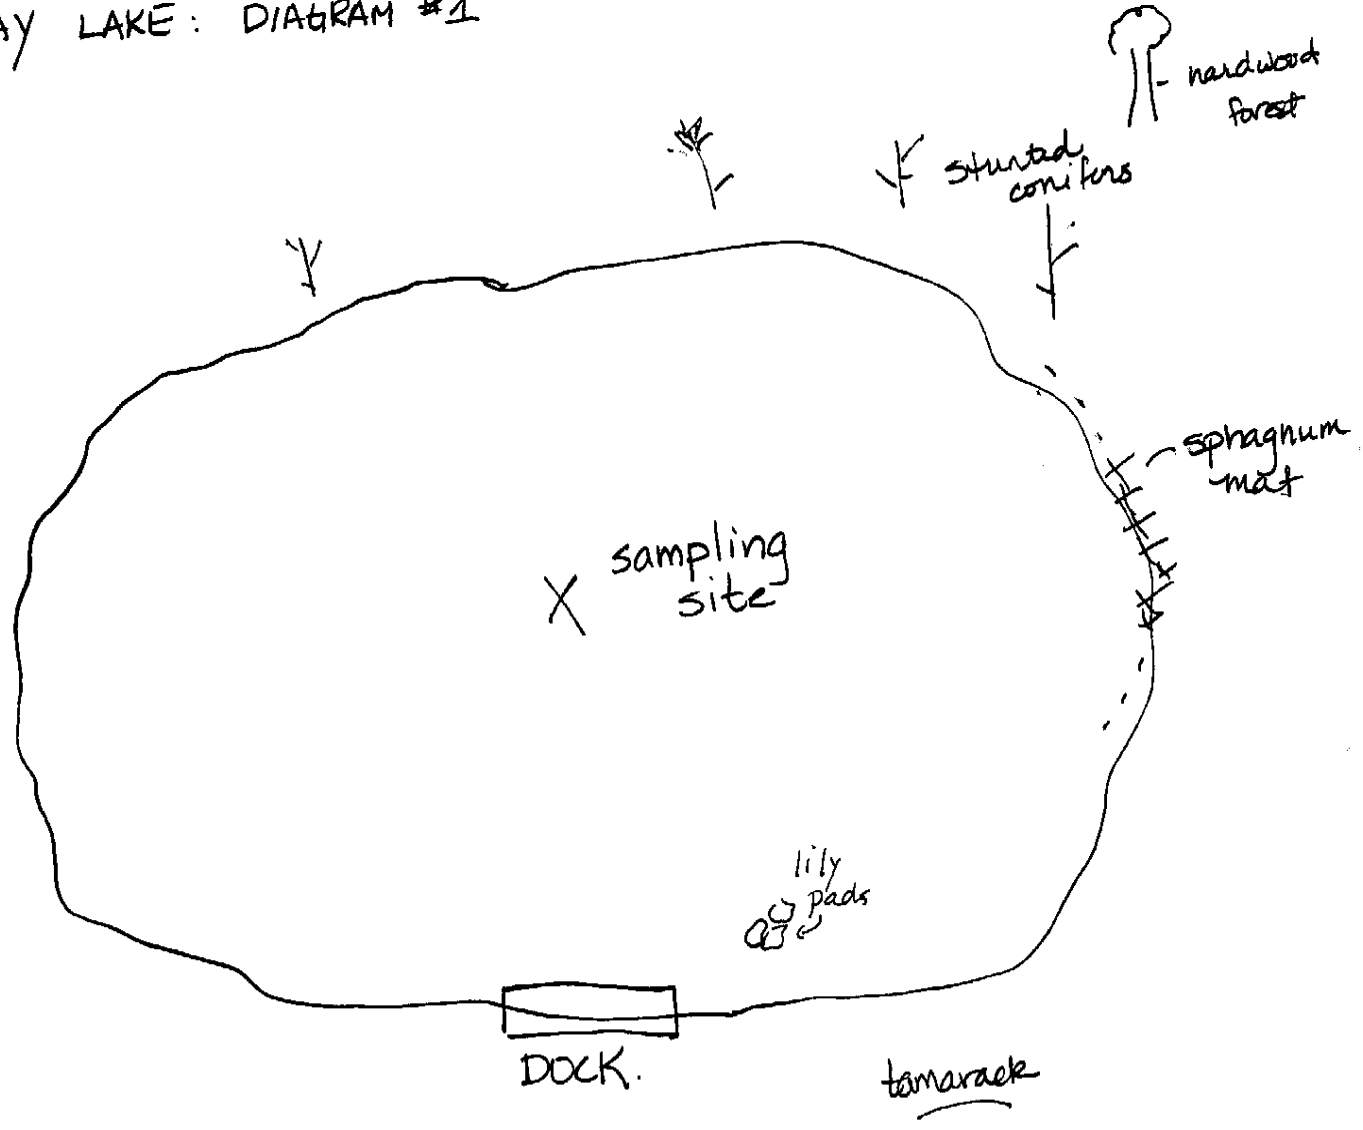 AY LAKE: DIAGRAM #1
hardwood
forest
stunted
conifers
sphagnum
mat
sampling
site
X
lily
pads
DOCK.
tamarack